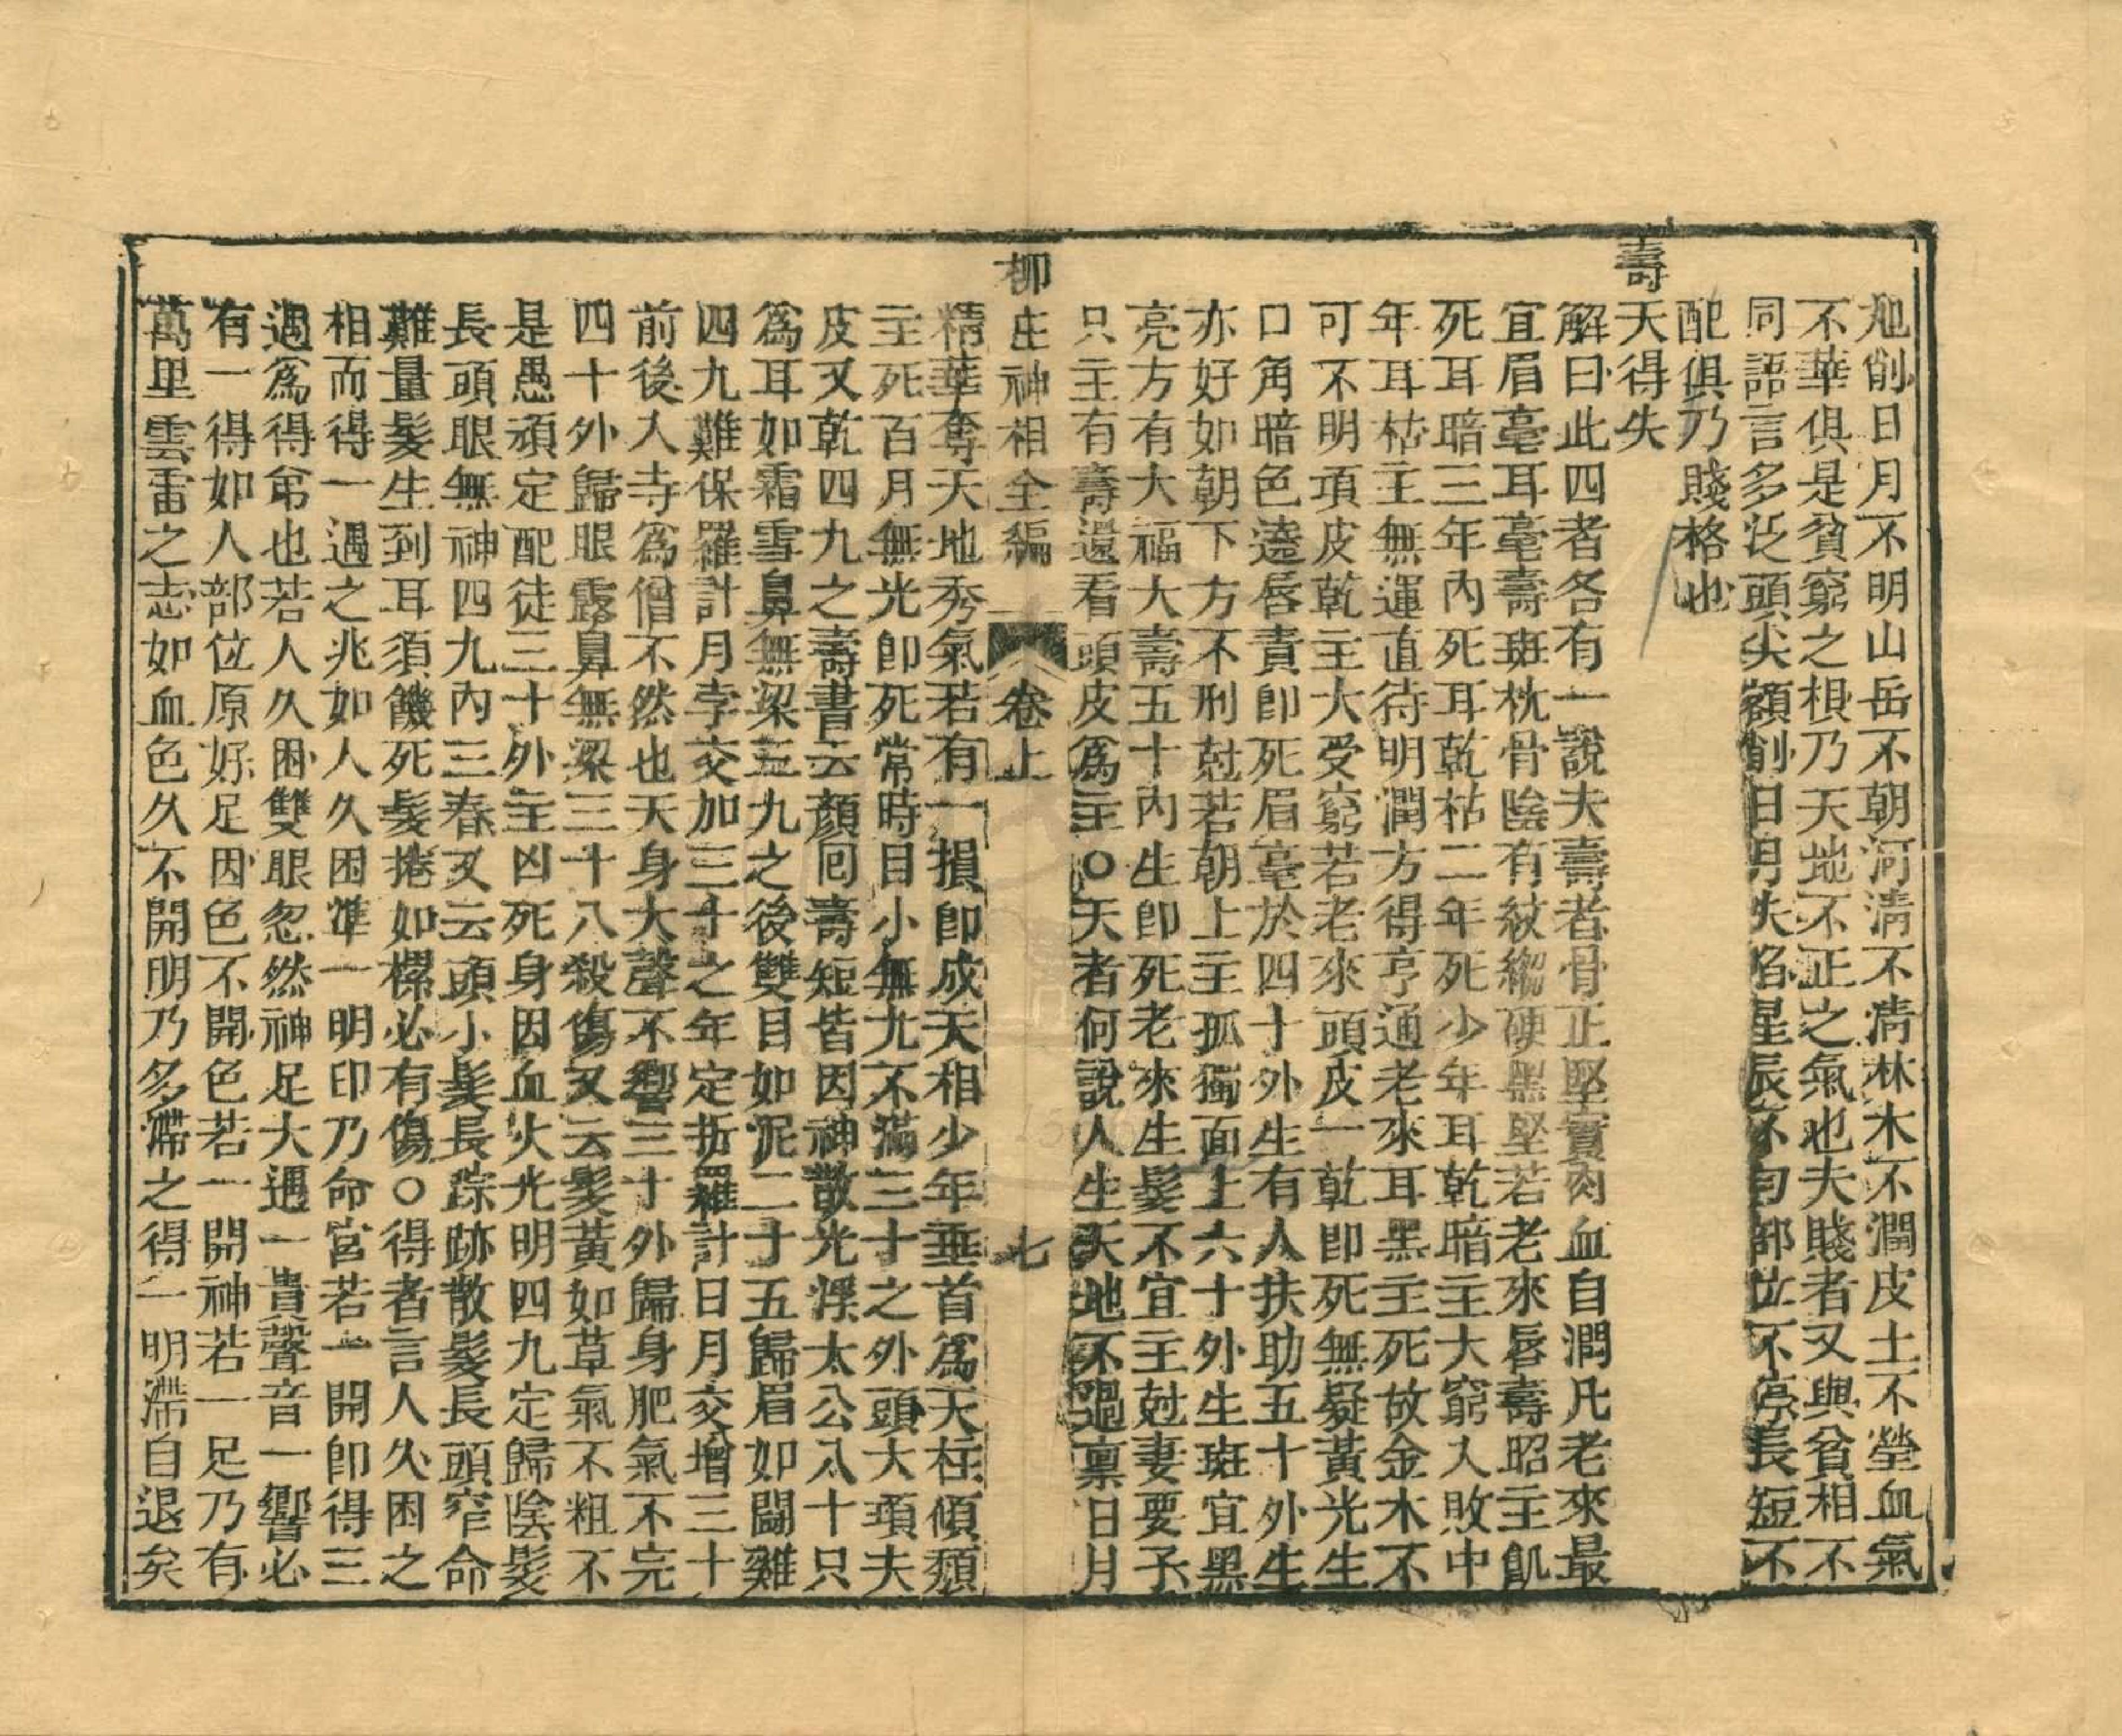 尩削日月不明山岳不朝河清不清林木不潤皮土不瑩血氣
不華俱是貧窮之根乃天地不正之氣也夫賤者又與貧相不
同語言多泛頭尖額削日月失陷星辰不勻部位不停長短不
配俱乃賤格也
壽夭得失
解曰此四者各有一說夫壽者骨正堅實肉血自潤凡老來最
宜眉毫耳毫壽斑枕骨陰有紋縐硬黑堅若老來唇壽昭主飢
死耳暗三年內死耳乾枯二年死少年耳乾暗主大窮人敗中
年耳枯主無運直待明潤方得亨通老來耳黑主死故金木不
可不明項皮乾主大受窮若老來頭皮一乾即死無疑黃光生
口角暗色遶唇責即死眉毫於四十外生有人扶助五十外生
亦好如朝下方不刑尅若朝上主孤獨面上六十外生斑宜黑
亮方有大福大壽五十內生即死老來生髮不宜主尅妻要子
只主有壽還看頭皮為主○夭者何說人生天地不過稟日月
柳庄神相全編 卷上 七
精華奪天地秀氣若有一損即成夭相少年垂首為天柱傾頹
主死百月無光即死常時目小無九不滿三十之外頭大項夫
皮又乾四九之壽書云顏回壽短皆因神散光浮太公八十只
為耳如霜雪鼻無梁三九之後雙目如泥二十五歸眉如鬪雞
四九難保羅計月孛交加三十之年定折羅計日月交增三十
前後人寺為僧不然也夭身大聲不響三十外歸身肥氣不完
四十外歸眼露鼻無梁三十八殺傷又云髮黃如草氣不粗不
是愚頑定配徒三十外主凶死身因血火光明四九定歸陰髮
長頭眼無神四九內三春又云頭小髮長踪跡散髮長頭窄命
難量髮生到耳須饑死髮捲如螺必有傷○得者言人久困之
相而得一遇之兆如人久困準一明印乃命宮若一開即得三
遇為得第也若人久困雙眼忽然神足大遇一貴聲音一響必
有一得如人部位原好足因色不開色若一開神若一足乃有
萬里雲雷之志如血色久不開明乃多滯之得一明滯自退矣